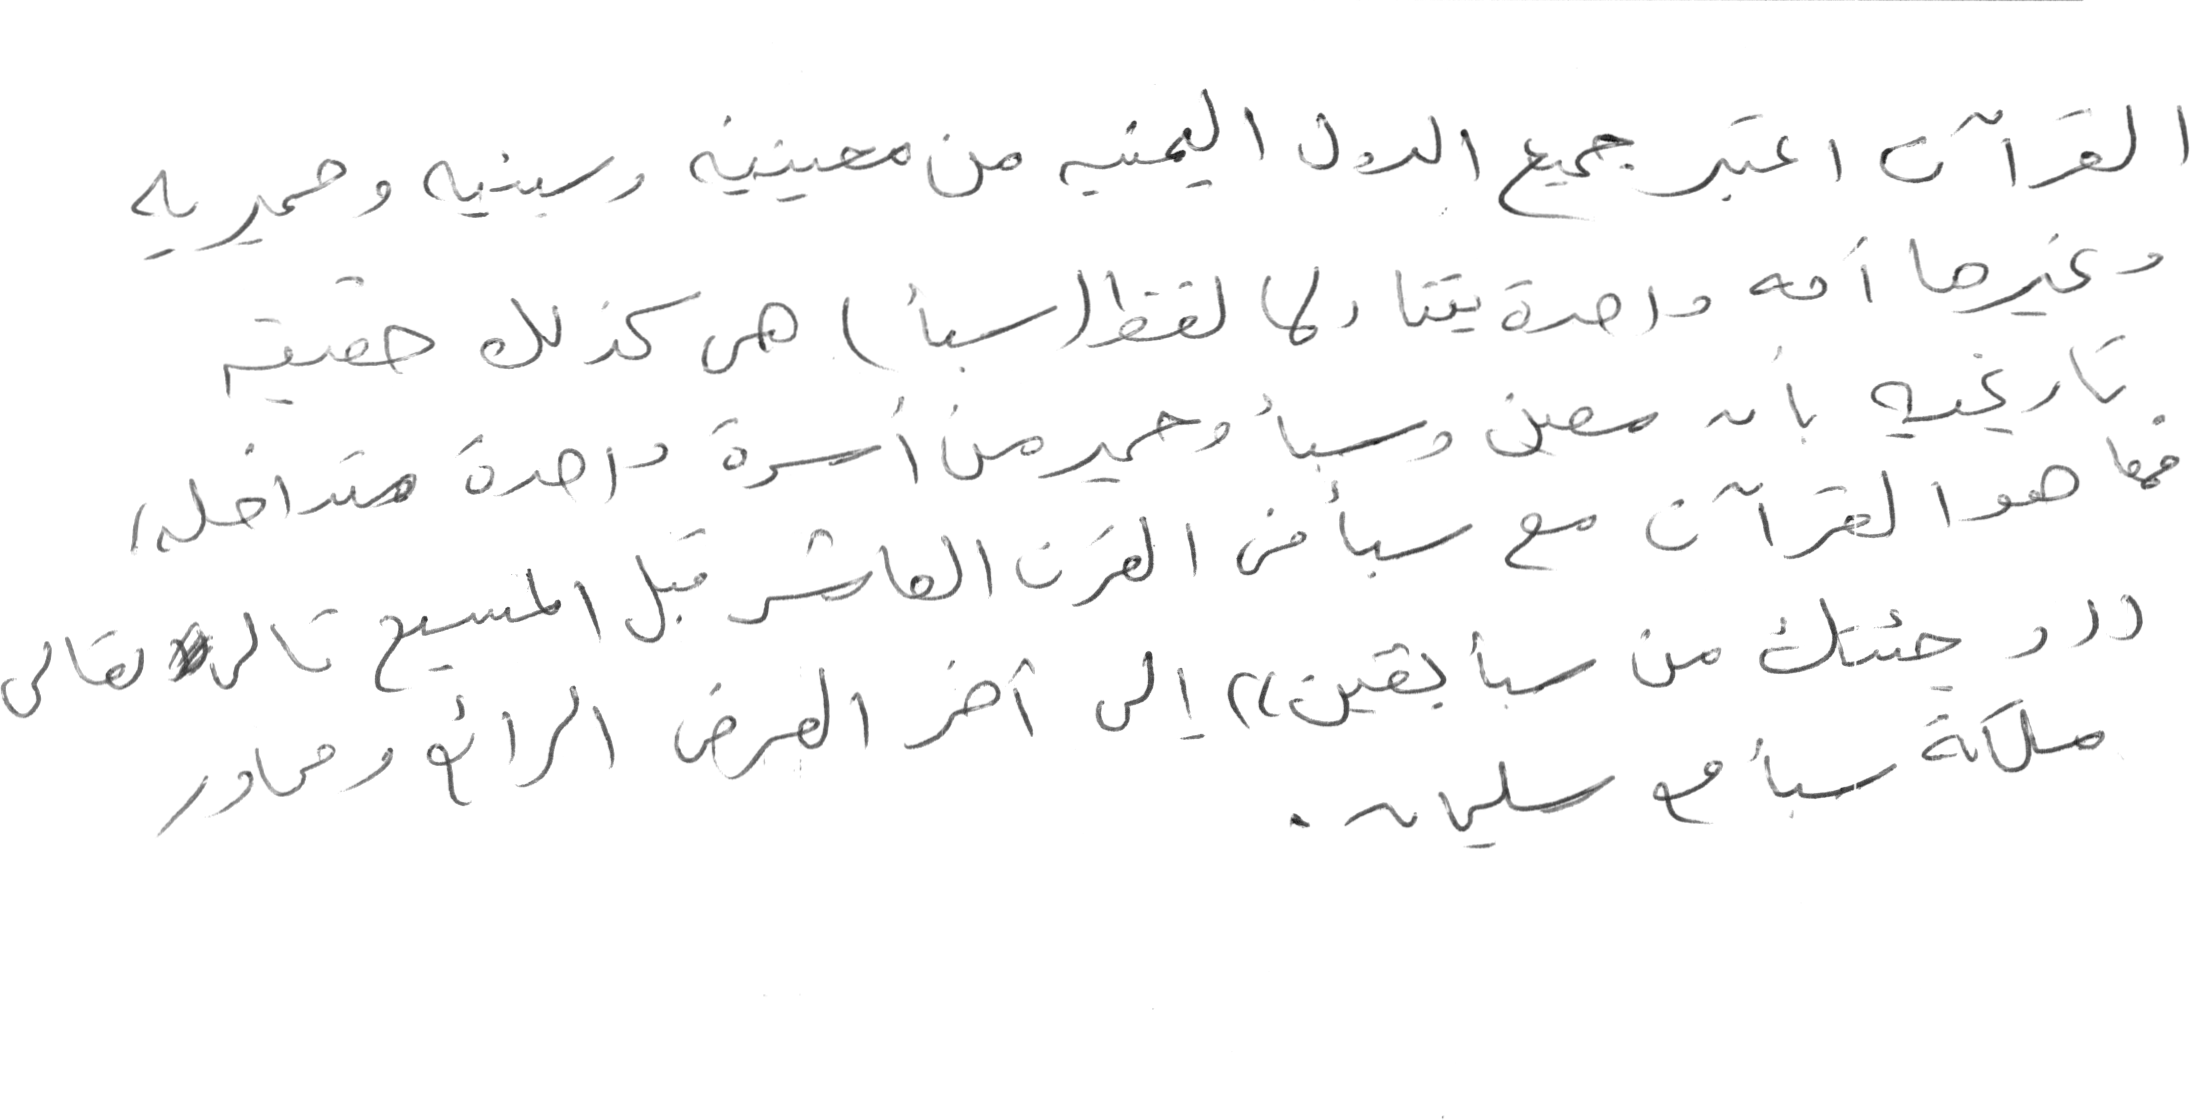 القرآن اعتبر جميع الدول اليمنيه من معينية وسبئيه وحميريه
وغيرها أمه واحدة يتناولها لفظ (سبأ) هى كذلك حقيقه
تاريخيه بأن معين وسبأ وحمير من أسرة واحدة متداخله،
فها هو القرآن مع سبأ فى القرن العاشر قبل المسيح قال تعالى
((و جئتك من سبأ بيقين)) إلى آخر العرض الرائع و
ملكة سبأ مع سليمان.